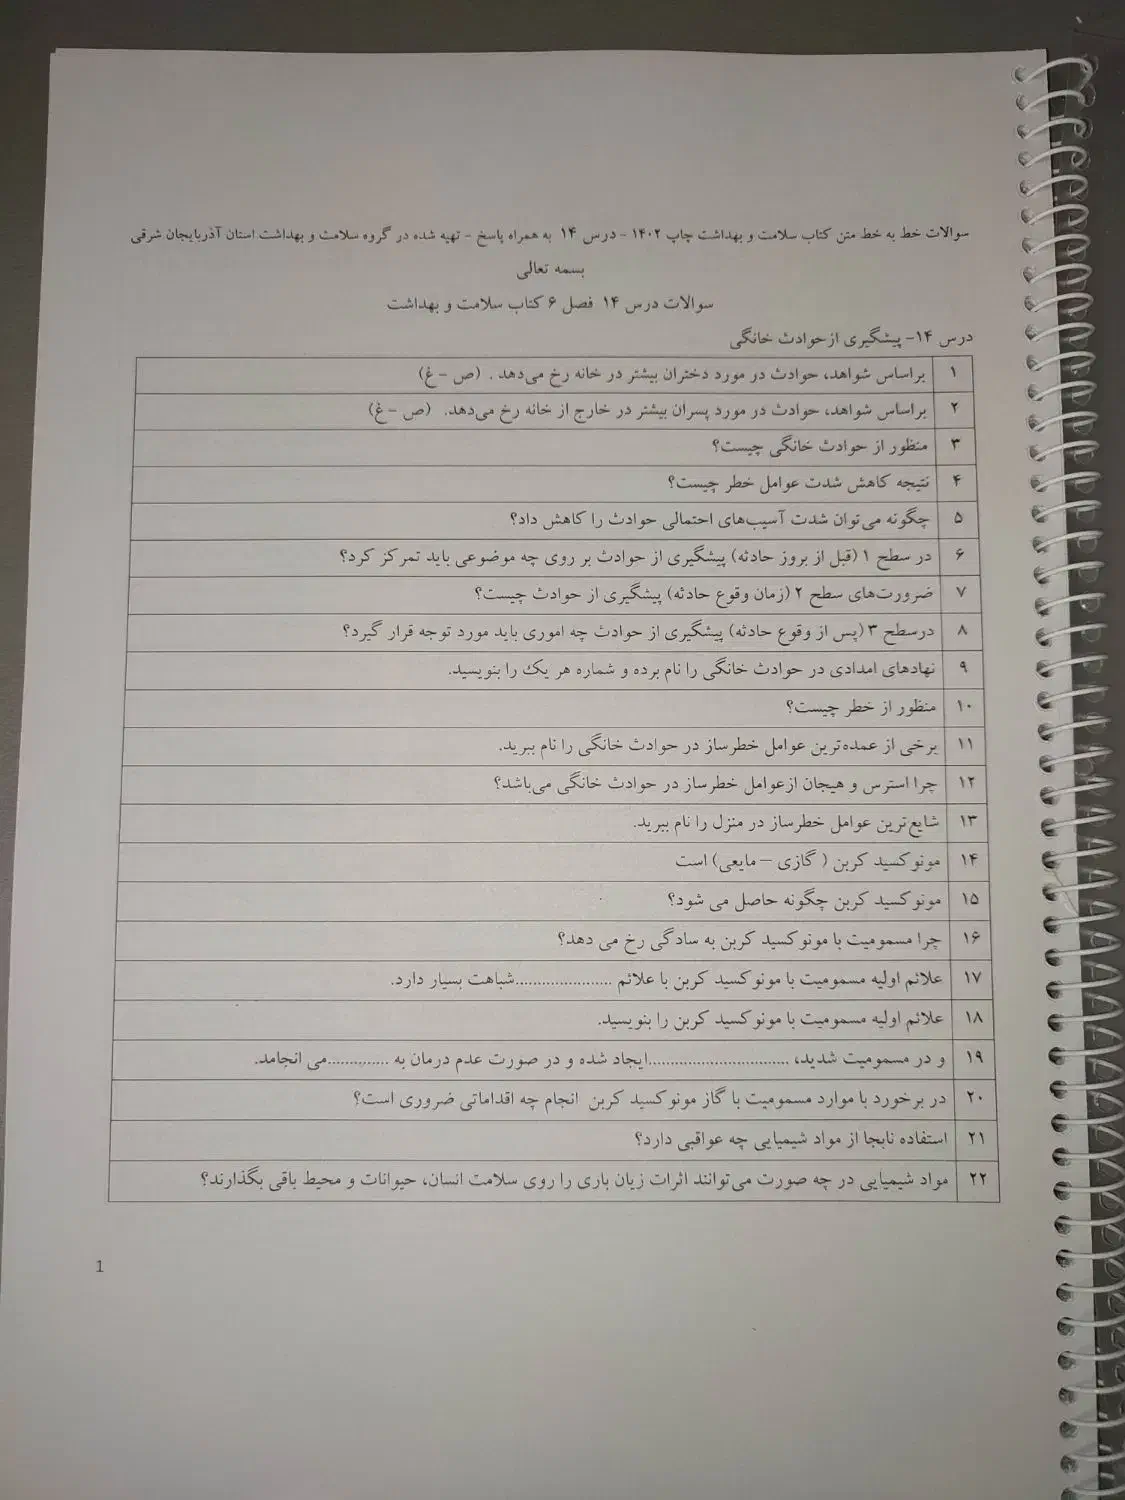 سوالات خط به خط متن کتاب سلامت و بهداشت چاپ ۱۴۰۲ - درس ۱۴ به همراه پاسخ - تهیه شده در گروه سلامت و بهداشت استان آذربایجان شرقی
بسمه تعالی
سوالات درس ۱۴ فصل ۶ کتاب سلامت و بهداشت
درس ۱۴- پیشگیری از حوادث خانگی
۱ براساس شواهد، حوادث در مورد دختران بیشتر در خانه رخ می‌دهد . (ص - غ)
۲ براساس شواهد، حوادث در مورد پسران بیشتر در خارج از خانه رخ می‌دهد. (ص - غ)
۳ منظور از حوادث خانگی چیست؟
۴ نتیجه کاهش شدت عوامل خطر چیست؟
۵ چگونه می‌توان شدت آسیب‌های احتمالی حوادث را کاهش داد؟
۶ در سطح ۱ (قبل از بروز حادثه) پیشگیری از حوادث بر روی چه موضوعی باید تمرکز کرد؟
۷ ضرورت‌های سطح ۲ (زمان وقوع حادثه) پیشگیری از حوادث چیست؟
۸ درسطح ۳ (پس از وقوع حادثه) پیشگیری از حوادث چه اموری باید مورد توجه قرار گیرد؟
۹ نهادهای امدادی در حوادث خانگی را نام برده و شماره هر یک را بنویسید.
۱۰ منظور از خطر چیست؟
۱۱ برخی از عمده‌ترین عوامل خطرساز در حوادث خانگی را نام ببرید.
۱۲ چرا استرس و هیجان ازعوامل خطرساز در حوادث خانگی می‌باشد؟
۱۳ شایع‌ترین عوامل خطرساز در منزل را نام ببرید.
۱۴ مونوکسید کربن ( گازی – مایعی) است
۱۵ مونوکسید کربن چگونه حاصل می شود؟
۱۶ چرا مسمومیت با مونوکسید کربن به سادگی رخ می دهد؟
۱۷ علائم اولیه مسمومیت با مونوکسید کربن با علائم ......................شباهت بسیار دارد.
۱۸ علائم اولیه مسمومیت با مونوکسید کربن را بنویسید.
۱۹ و در مسمومیت شدید، ................................ایجاد شده و در صورت عدم درمان به ..............می انجامد.
۲۰ در برخورد با موارد مسمومیت با گاز مونوکسید کربن انجام چه اقداماتی ضروری است؟
۲۱ استفاده نابجا از مواد شیمیایی چه عواقبی دارد؟
۲۲ مواد شیمیایی در چه صورت می‌توانند اثرات زیان باری را روی سلامت انسان، حیوانات و محیط باقی بگذارند؟
1